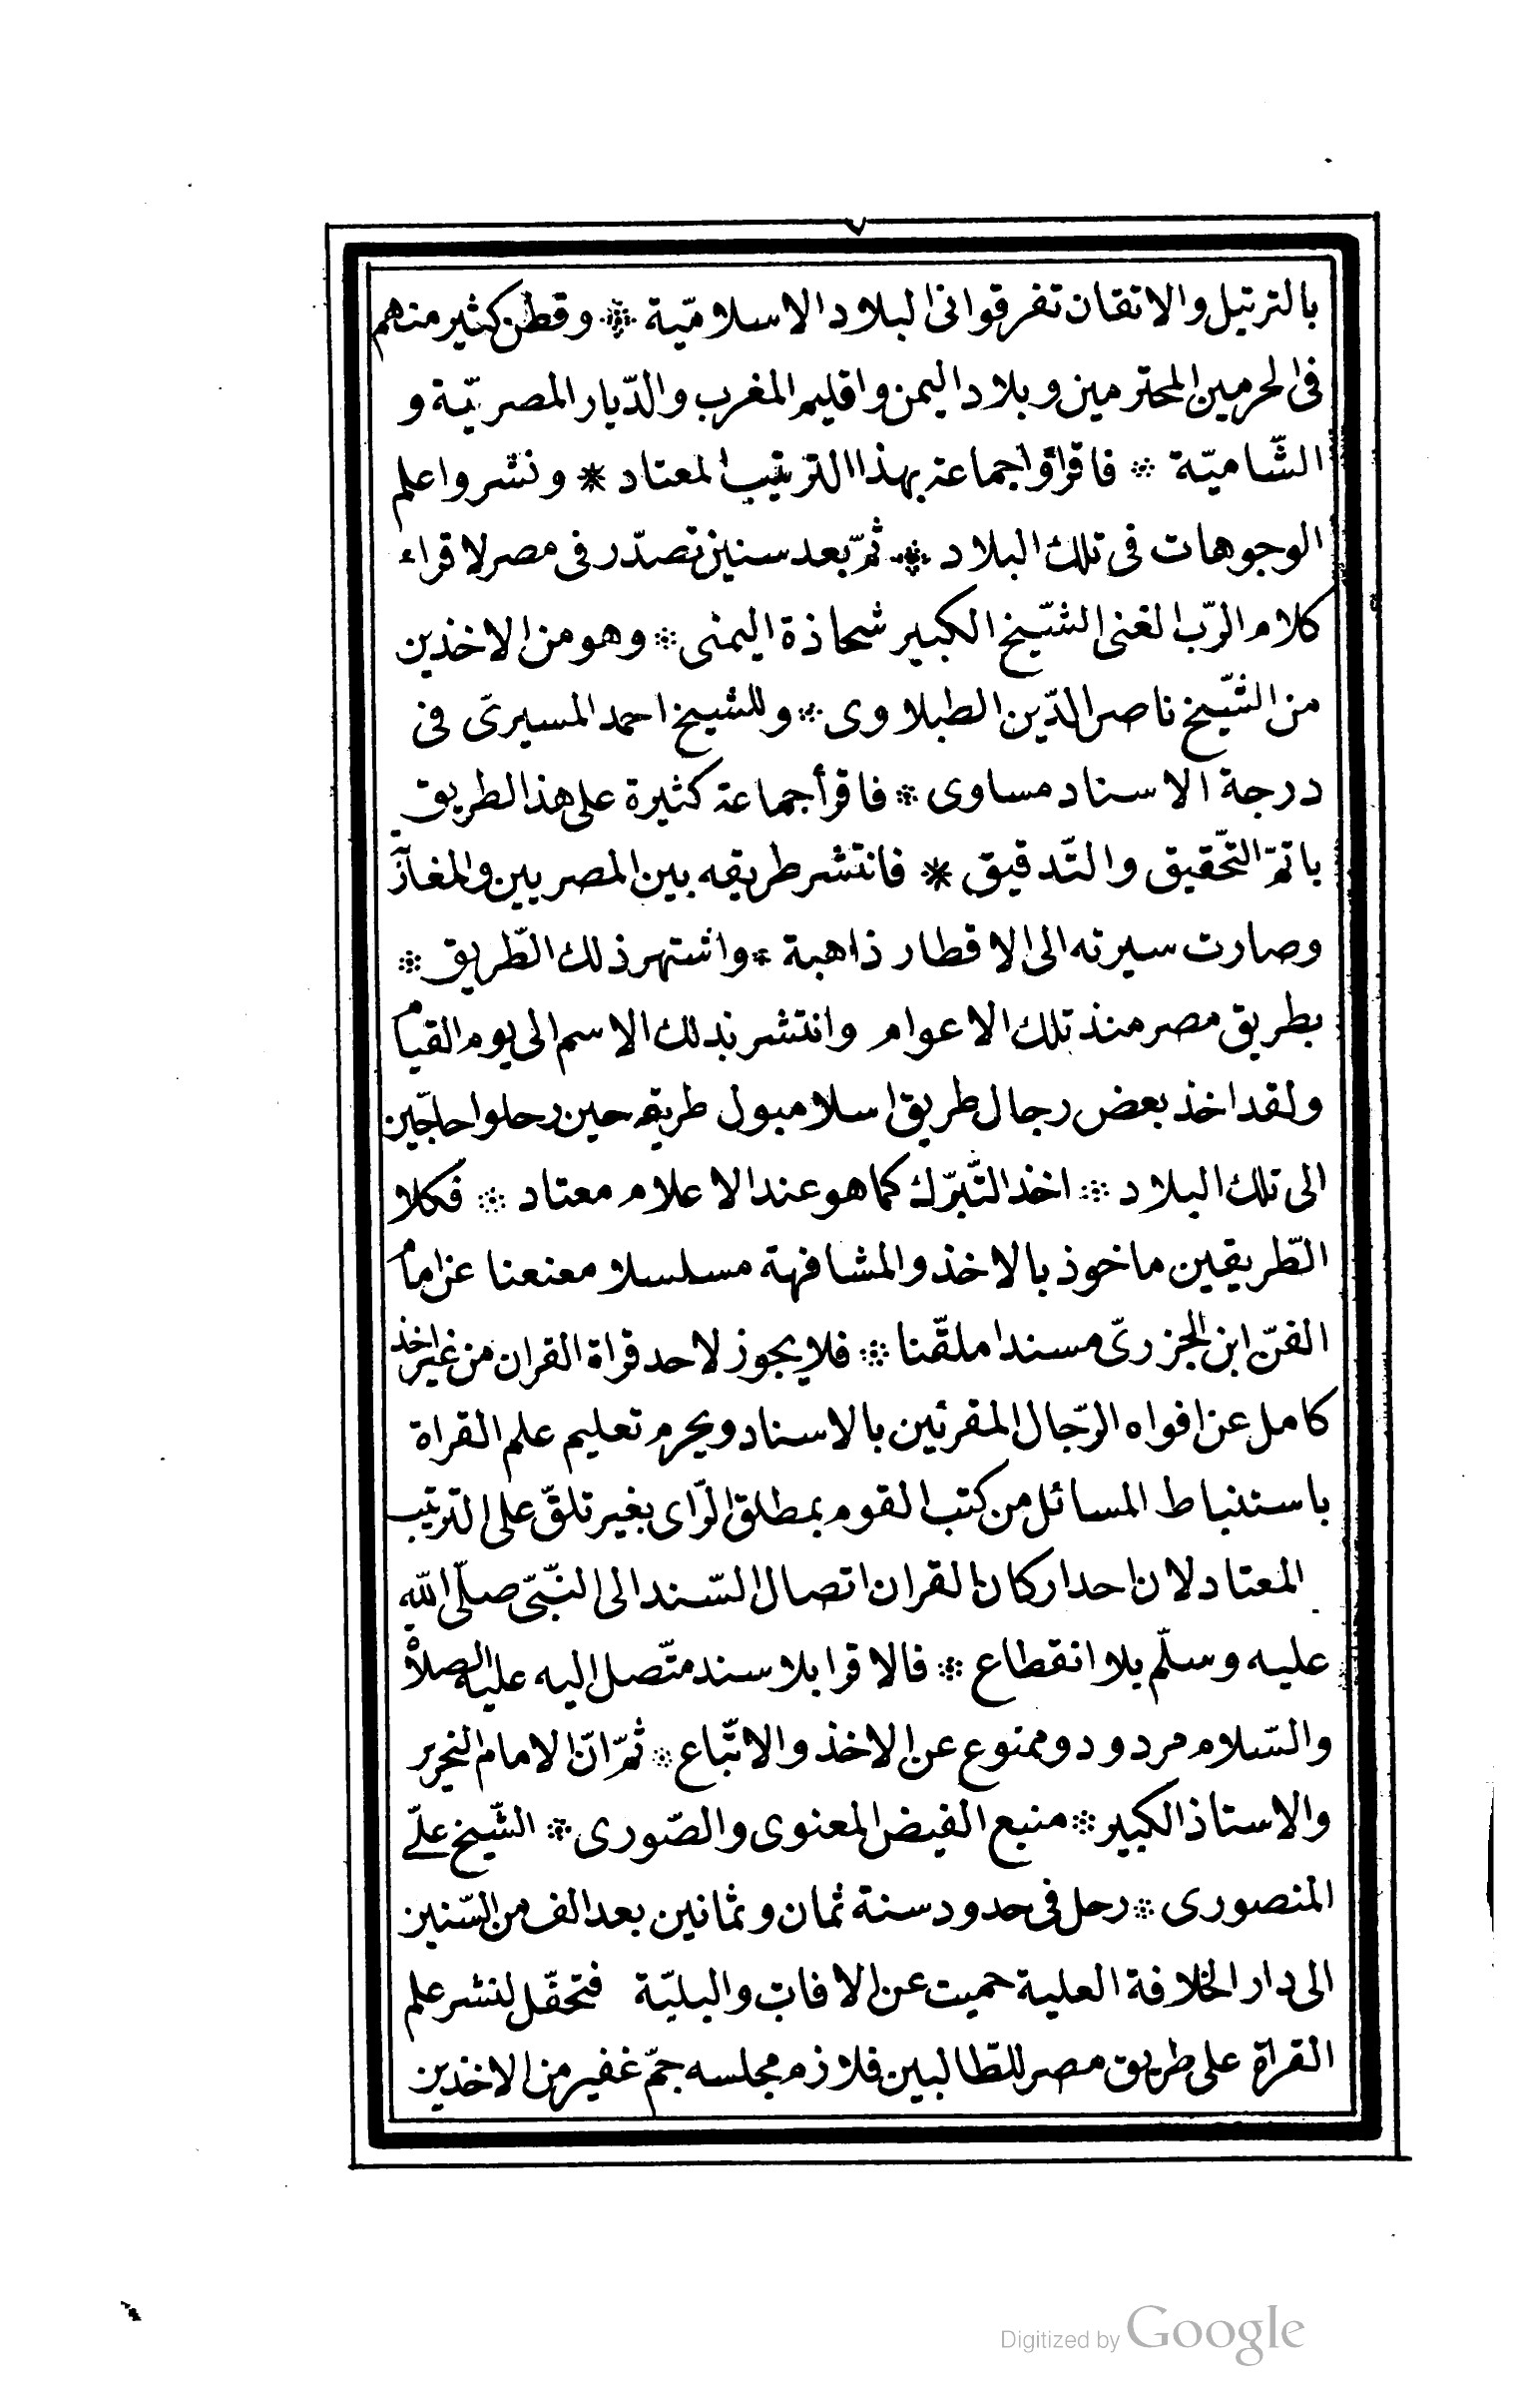 بالترتيل والاتقان تفرقوا فى البلاد الاسلاميّة * وقطن كثير منهم
فى الحرمين المحترمين وبلاد اليمن واقليم المغرب والدّيار المصريّة و
الشّاميّة * فاقرؤا جماعة بهذا الترتيب المعتاد * ونشروا علم
الوجوهات فى تلك البلاد * ثمّ بعد سنين تصدّر فى مصر لاقراء
كلام الرّب الغنى الشّيخ الكبير شحاذة اليمنى * وهو من الاخذين
من الشّيخ ناصر الدّين الطبلاوى * وللشيخ احمد المسيرىّ فى
درجة الاسناد مساوى * فاقرأ جماعة كثيرة على هذا الطريق
باتمّ التّحقيق والتّدقيق * فانتشر طريقه بين المصريين والمغآر
وصارت سيرته الى الاقطار ذاهبة * واشتهر ذلك الطّريق *
بطريق مصر منذ تلك الاعوام وانتشر بذلك الاسم الى يوم القيام
ولقد اخذ بعض رجال طريق اسلامبول طريقه حين رحلوا حاجّين
الى تلك البلاد * اخذ التّبرّك كما هو عند الاعلام معتاد * فكلا
الطّريقين ماخوذ بالاخذ والمشافهة مسلسلا معنعنا عن امام
الفنّ ابن الجزرىّ مسندا ملقّنا * فلا يجوز لاحد قراة القران من غير اخذ
كامل عن افواه الرّجال المقرئين بالاسناد ويحرم تعليم علم القراة
باستنباط المسائل من كتب القوم بمطلق الرّاى بغير تلقّ على الترتيب
المعتاد لان احد اركان القران اتصال السّند الى النّبىّ صلّى اللّه
عليه وسلّم بلا انقطاع * فالاقرا بلا سند متّصل اليه عليه الصلاة
والسّلام مردود وممنوع عن الاخذ والاتّباع * ثمّ انّ الامام النحرير
والاستاذ الكبير * منبع الفيض المعنوى والصّورى * الشّيخ علىّ
المنصورى * رحل فى حدود سنة ثمان وثمانين بعد الف من السّنين
الى دار الخلافة العلية حميت عن الافات والبليّة فتحفّل لنشر علم
القراة على طريق مصر للطّالبين فلازم مجلسه جمّ غفير من الاخذين
Digitized by Google